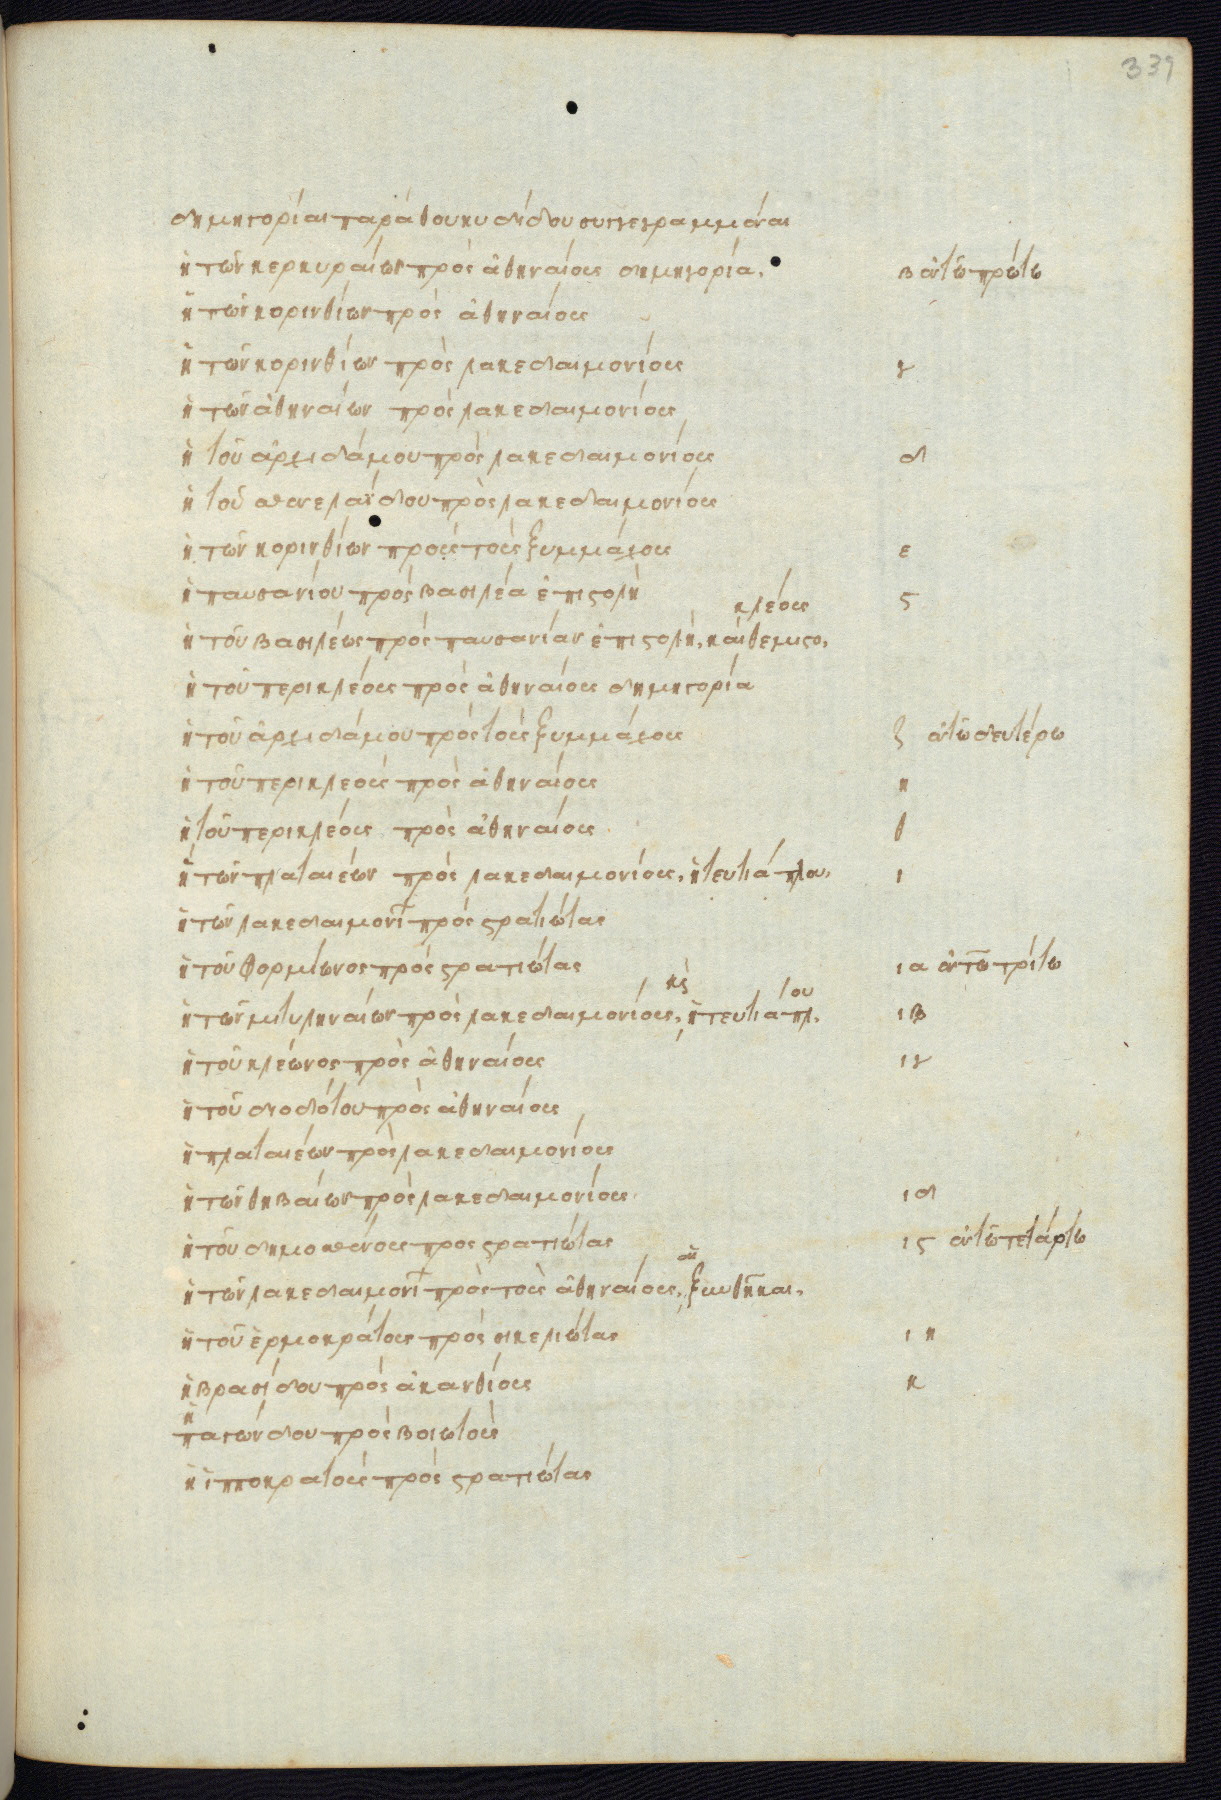 339
δημηγορίαι παρὰ θουκυδίδου συγγεγραμμέναι
ἡ τῶν κερκυραίων πρὸς ἀθηναίους δημηγορία. β ἐν τῷ πρώτω
ἡ τῶν κορινθίων πρὸς ἀθηναίους
ἡ τῶν κορινθίων πρὸς λακεδαιμονίους γ
ἡ τῶν ἀθηναίων πρὸς λακεδαιμονίους
ἡ τοῦ ἀρχιδάμου πρὸς λακεδαιμονίους δ
ἡ τοῦ σθενελαΐδου πρὸς λακεδαιμονίους
ἡ τῶν κορινθίων πρὸς τοὺς ξυμμάχους ε
ἡ παυσανίου πρὸς βασιλέα ἐπιστολὴ ϛ
ἡ τοῦ βασιλέως πρὸς παυσανίαν ἐπιστολὴ, καὶ θεμιστο. κλέους
ἡ τοῦ περικλέους πρὸς ἀθηναίους δημηγορία
ἡ τοῦ ἀρχιδάμου πρὸς τοὺς ξυμμάχους ζ ἐν τῷ δευτέρω
ἡ τοῦ περικλεους πρὸς ἀθηναίους η
ἡ τοῦ περικλέους πρὸς ἀθηναίους θ
ἡ τῶν πλαταιέων πρὸς λακεδαιμονίους, ἡ τευτιάπλου. ι
ἡ τῶν λακεδαιμονί πρὸς στρατιώτας
ἡ τοῦ φορμίωνος πρὸς στρατιώτας ια ἐν τῶ τρίτω
ἡ τῶν μιτυληναίων πρὸς λακεδαιμονίους, κὶ ἡ τευτιάπλ. ου ιβ
ἡ τοῦ κλέωνος πρὸς ἀθηναίους ιγ
ἡ τοῦ διοδότου πρὸς ἀθηναίους
ἡ πλαταιέων πρὸς λακεδαιμονίους
ἡ τῶν θηβαίων πρὸς λακεδαιμονίους ιδ
ἡ τοῦ δημοσθένους προς στρατιώτας ιϛ ἐν τῷ τετάρτω
ἡ τῶν λακεδαιμονί πρὸς τοὺς ἀθηναίους, αἱ ξυνθῆκαι.
ἡ τοῦ ἑρμοκράτους πρὸς σικελιώτας ιη
ἡ βρασίδου πρὸς ἀκανθίους κ
ἡ παγώνδου πρὸς βοιωτοὺς
ἡ ἱπποκρατους πρὸς στρατιώτας